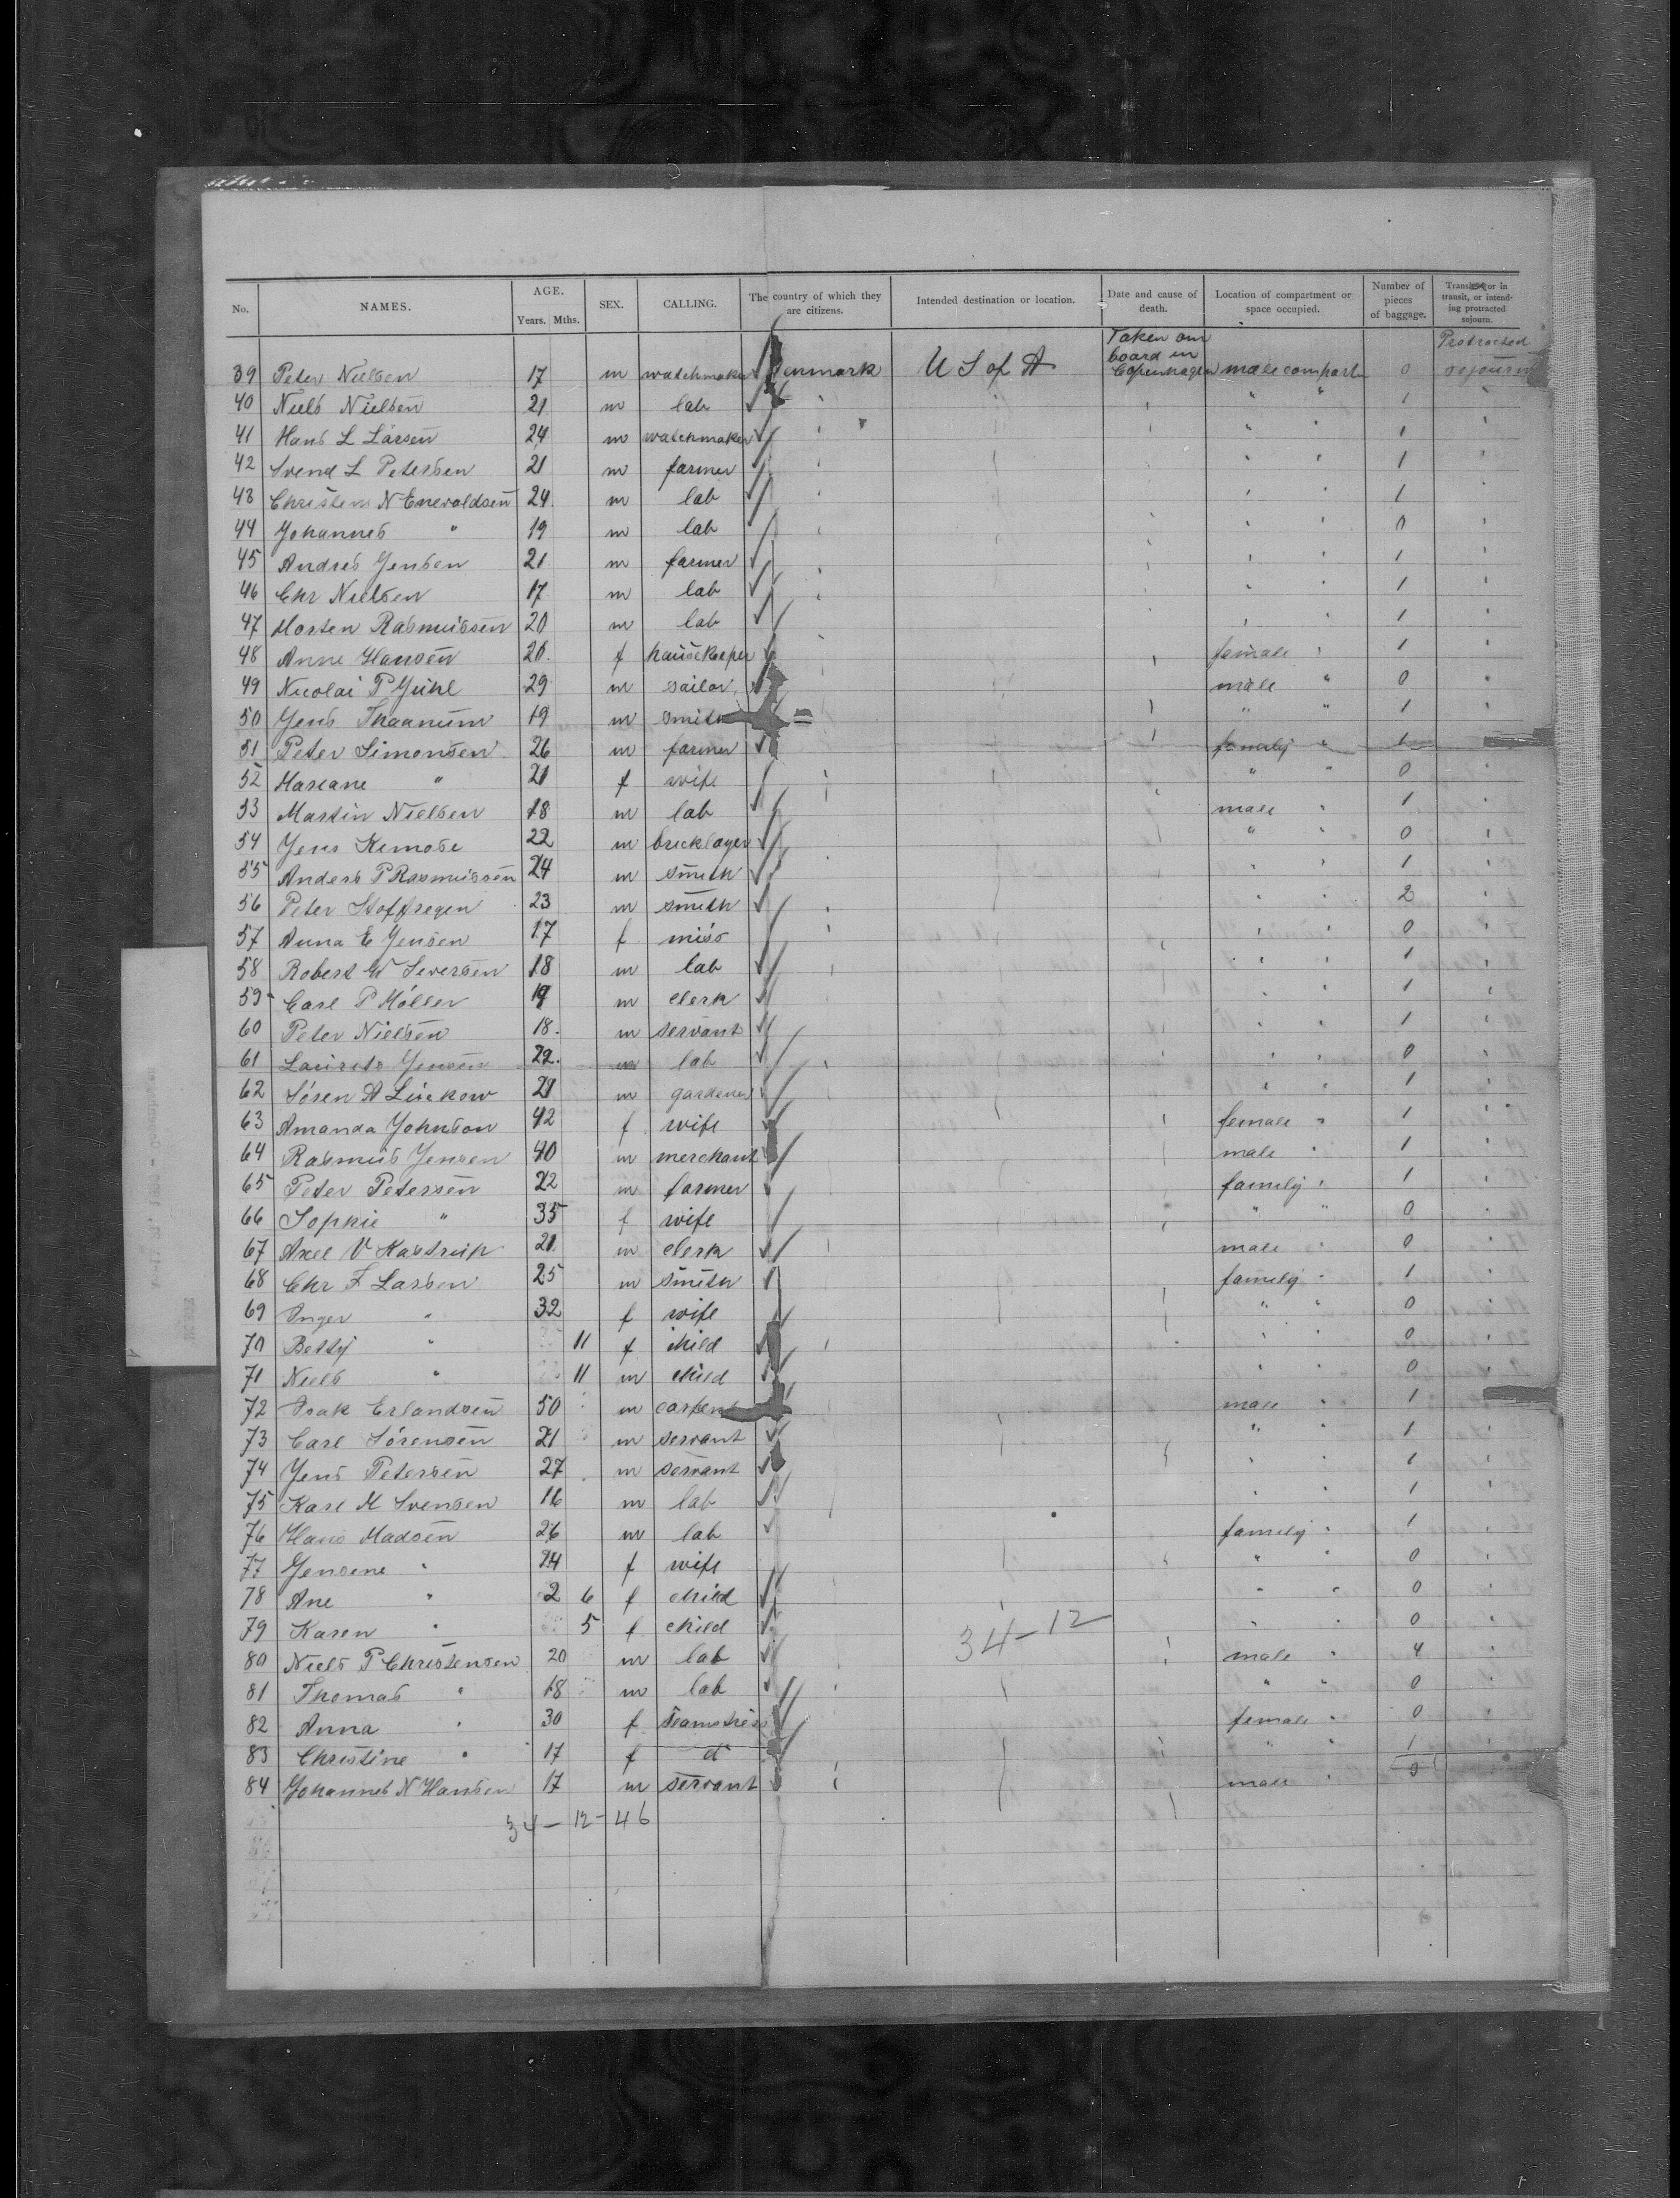 No. NAMES. AGE. Years. Mths. SEX. CALLING. The country of which they are citizens. Intended destination or location. Date and cause of death. Location of compartment or space occupied. Number of pieces of baggage. Transient or in transit, or intending protracted sojourn.
39 Peter Nielsen 17 m watchmaker Denmark U S of A Taken on board in Copenhagen male compart 0 Protracted sojourn
40 Niels Nielsen 21 m lab " " 1 "
41 Hans L Larsen 24 m watchmaker " " 1 "
42 Svend L Petersen 21 m farmer " " 1 "
43 Christen N Enevoldsen 24 m lab " " 1 "
44 Johannes " 19 m lab " " 0 "
45 Andres Jensen 21 m farmer " " 1 "
46 Chr Nielsen 17 m lab " " 1 "
47 Morten Rasmussen 20 m lab " " 1 "
48 Anne Hansen 20 f housekeeper female " 1 "
49 Nicolai P Juhl 29 m sailor male " 0 "
50 Jens Thaanum 19 m smith " " 1 "
51 Peter Simonsen 26 m farmer family " 1
52 Mareane " 21 f wife " " 0 "
53 Martin Nielsen 18 m lab male " 1 "
54 Jens Kemose 22 m bricklayer " " 0 "
55 Anders P Rasmussen 24 m smith " " 1 "
56 Peter Stoffregen 23 m smith " " 2 "
57 Anna E Jensen 17 f miss " " 0 "
58 Robert W Seversen 18 m lab " " 1 "
59 Carl P Möller 19 m clerk " " 1 "
60 Peter Nielsen 18 m servant " " 1 "
61 Laurits Jensen 22 m lab " " 0 "
62 Sören A Lückow 21 m gardener " " 1 "
63 Amanda Johnson 42 f wife female " 1 "
64 Rasmus Jensen 40 m merchant male " 1 "
65 Peter Petersen 22 m farmer family " 1 "
66 Sophie " 35 f wife " " 0 "
67 Axel V Kastrup 21 m clerk male " 0 "
68 Chr F Larsen 25 m smith family " 1 "
69 Inger " 32 f wife " " 0 "
70 Betty " 11 f child " " 0 "
71 Niels " 11 m child " " 0 "
72 Isak Erlandsen 50 m carpent male " 1
73 Carl Sörensen 21 m servant " " 1 "
74 Jens Petersen 27 m servant " " 1 "
75 Karl M Svensen 16 m lab " " 1 "
76 Hans Madsen 26 m lab family " 1 "
77 Jensene " 24 f wife " " 0 "
78 Ane " 2 6 f child " " 0 "
79 Karen " 5 f child 34-12 " " 0 "
80 Niels P Christensen 20 m lab male " 4 "
81 Thomas " 18 m lab " " 0 "
82 Anna " 30 f seamstress female " 0 "
83 Christine " 17 f do " " 1 "
84 Johannes N Hansen 17 m servant male " 0 "
34-12-46